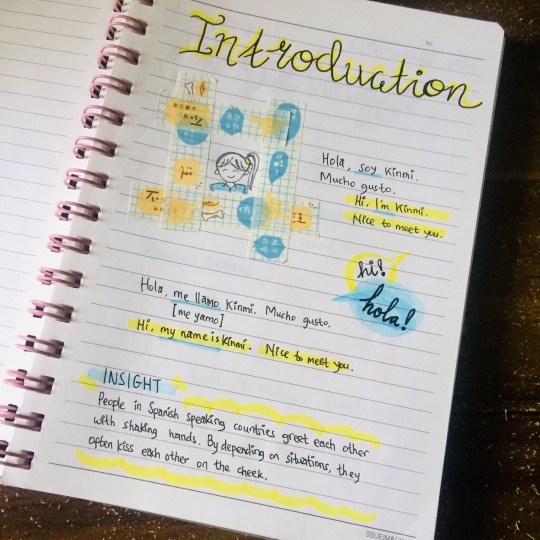 No.
Introduction
Hola, soy Kinmi.
Mucho gusto.
Hi, I'm Kinmi.
Nice to meet you.
hi!
hola!
Hola, me llamo Kinmi. Mucho gusto.
[me yamo]
Hi, my name is Kinmi. Nice to meet you.
INSIGHT
People in Spanish speaking countries greet each other
with shaking hands. By depending on situations, they
often kiss each other on the cheek.